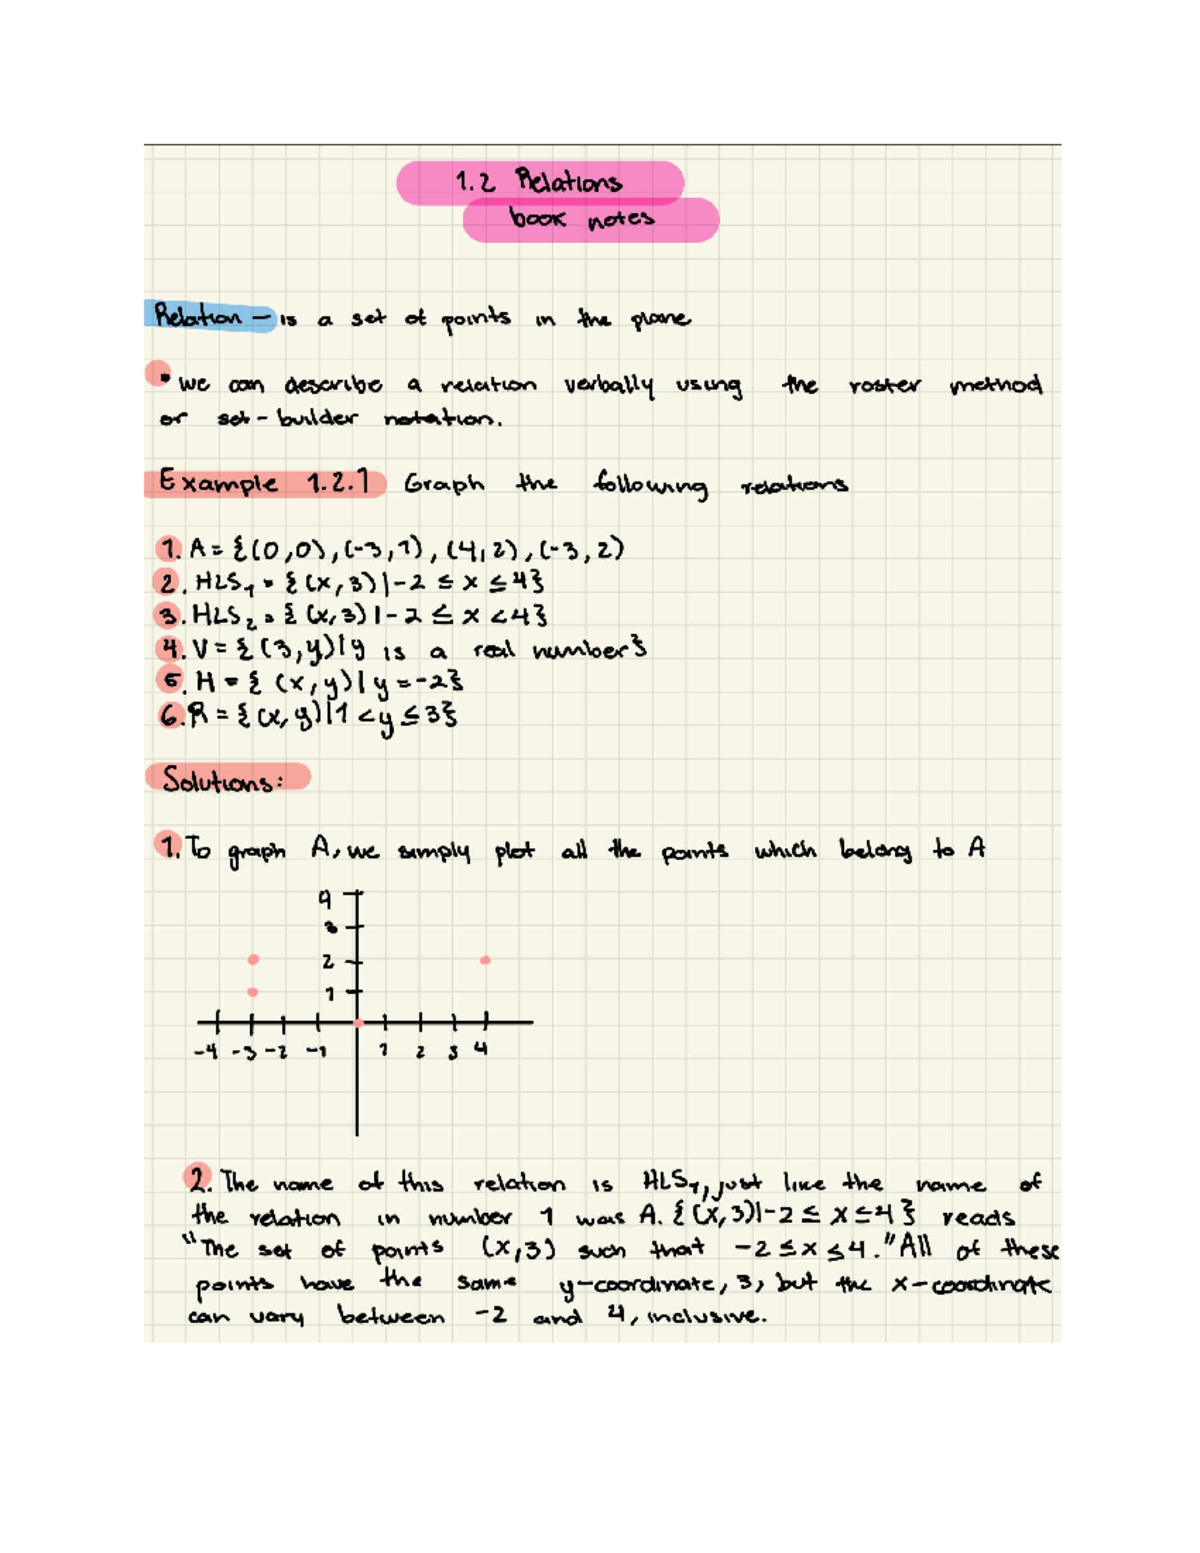 1.2 Relations
book notes
Relation – is a set of points in the plane
• we can describe a relation verbally using the roster method
or set-builder notation.
Example 1.2.1 Graph the following relations
1. A = {(0,0), (-3,1), (4,2), (-3,2)
2. HLS₁ = {(x,3)|-2 ≤ x ≤ 4}
3. HLS₂ = {(x,3)|-2 ≤ x < 4}
4. V = {(3,y)|y is a real number}
5. H = {(x,y)|y = -2}
6. R = {(x,y)|1 < y ≤ 3}
Solutions:
1. To graph A, we simply plot all the points which belong to A
4
3
2
1
-4 -3 -2 -1 1 2 3 4
2. The name of this relation is HLS₁, just like the name of
the relation in number 1 was A. {(x,3)|-2 ≤ x ≤ 4} reads
"The set of points (x,3) such that -2 ≤ x ≤ 4." All of these
points have the same y-coordinate, 3, but the x-coordinate
can vary between -2 and 4, inclusive.